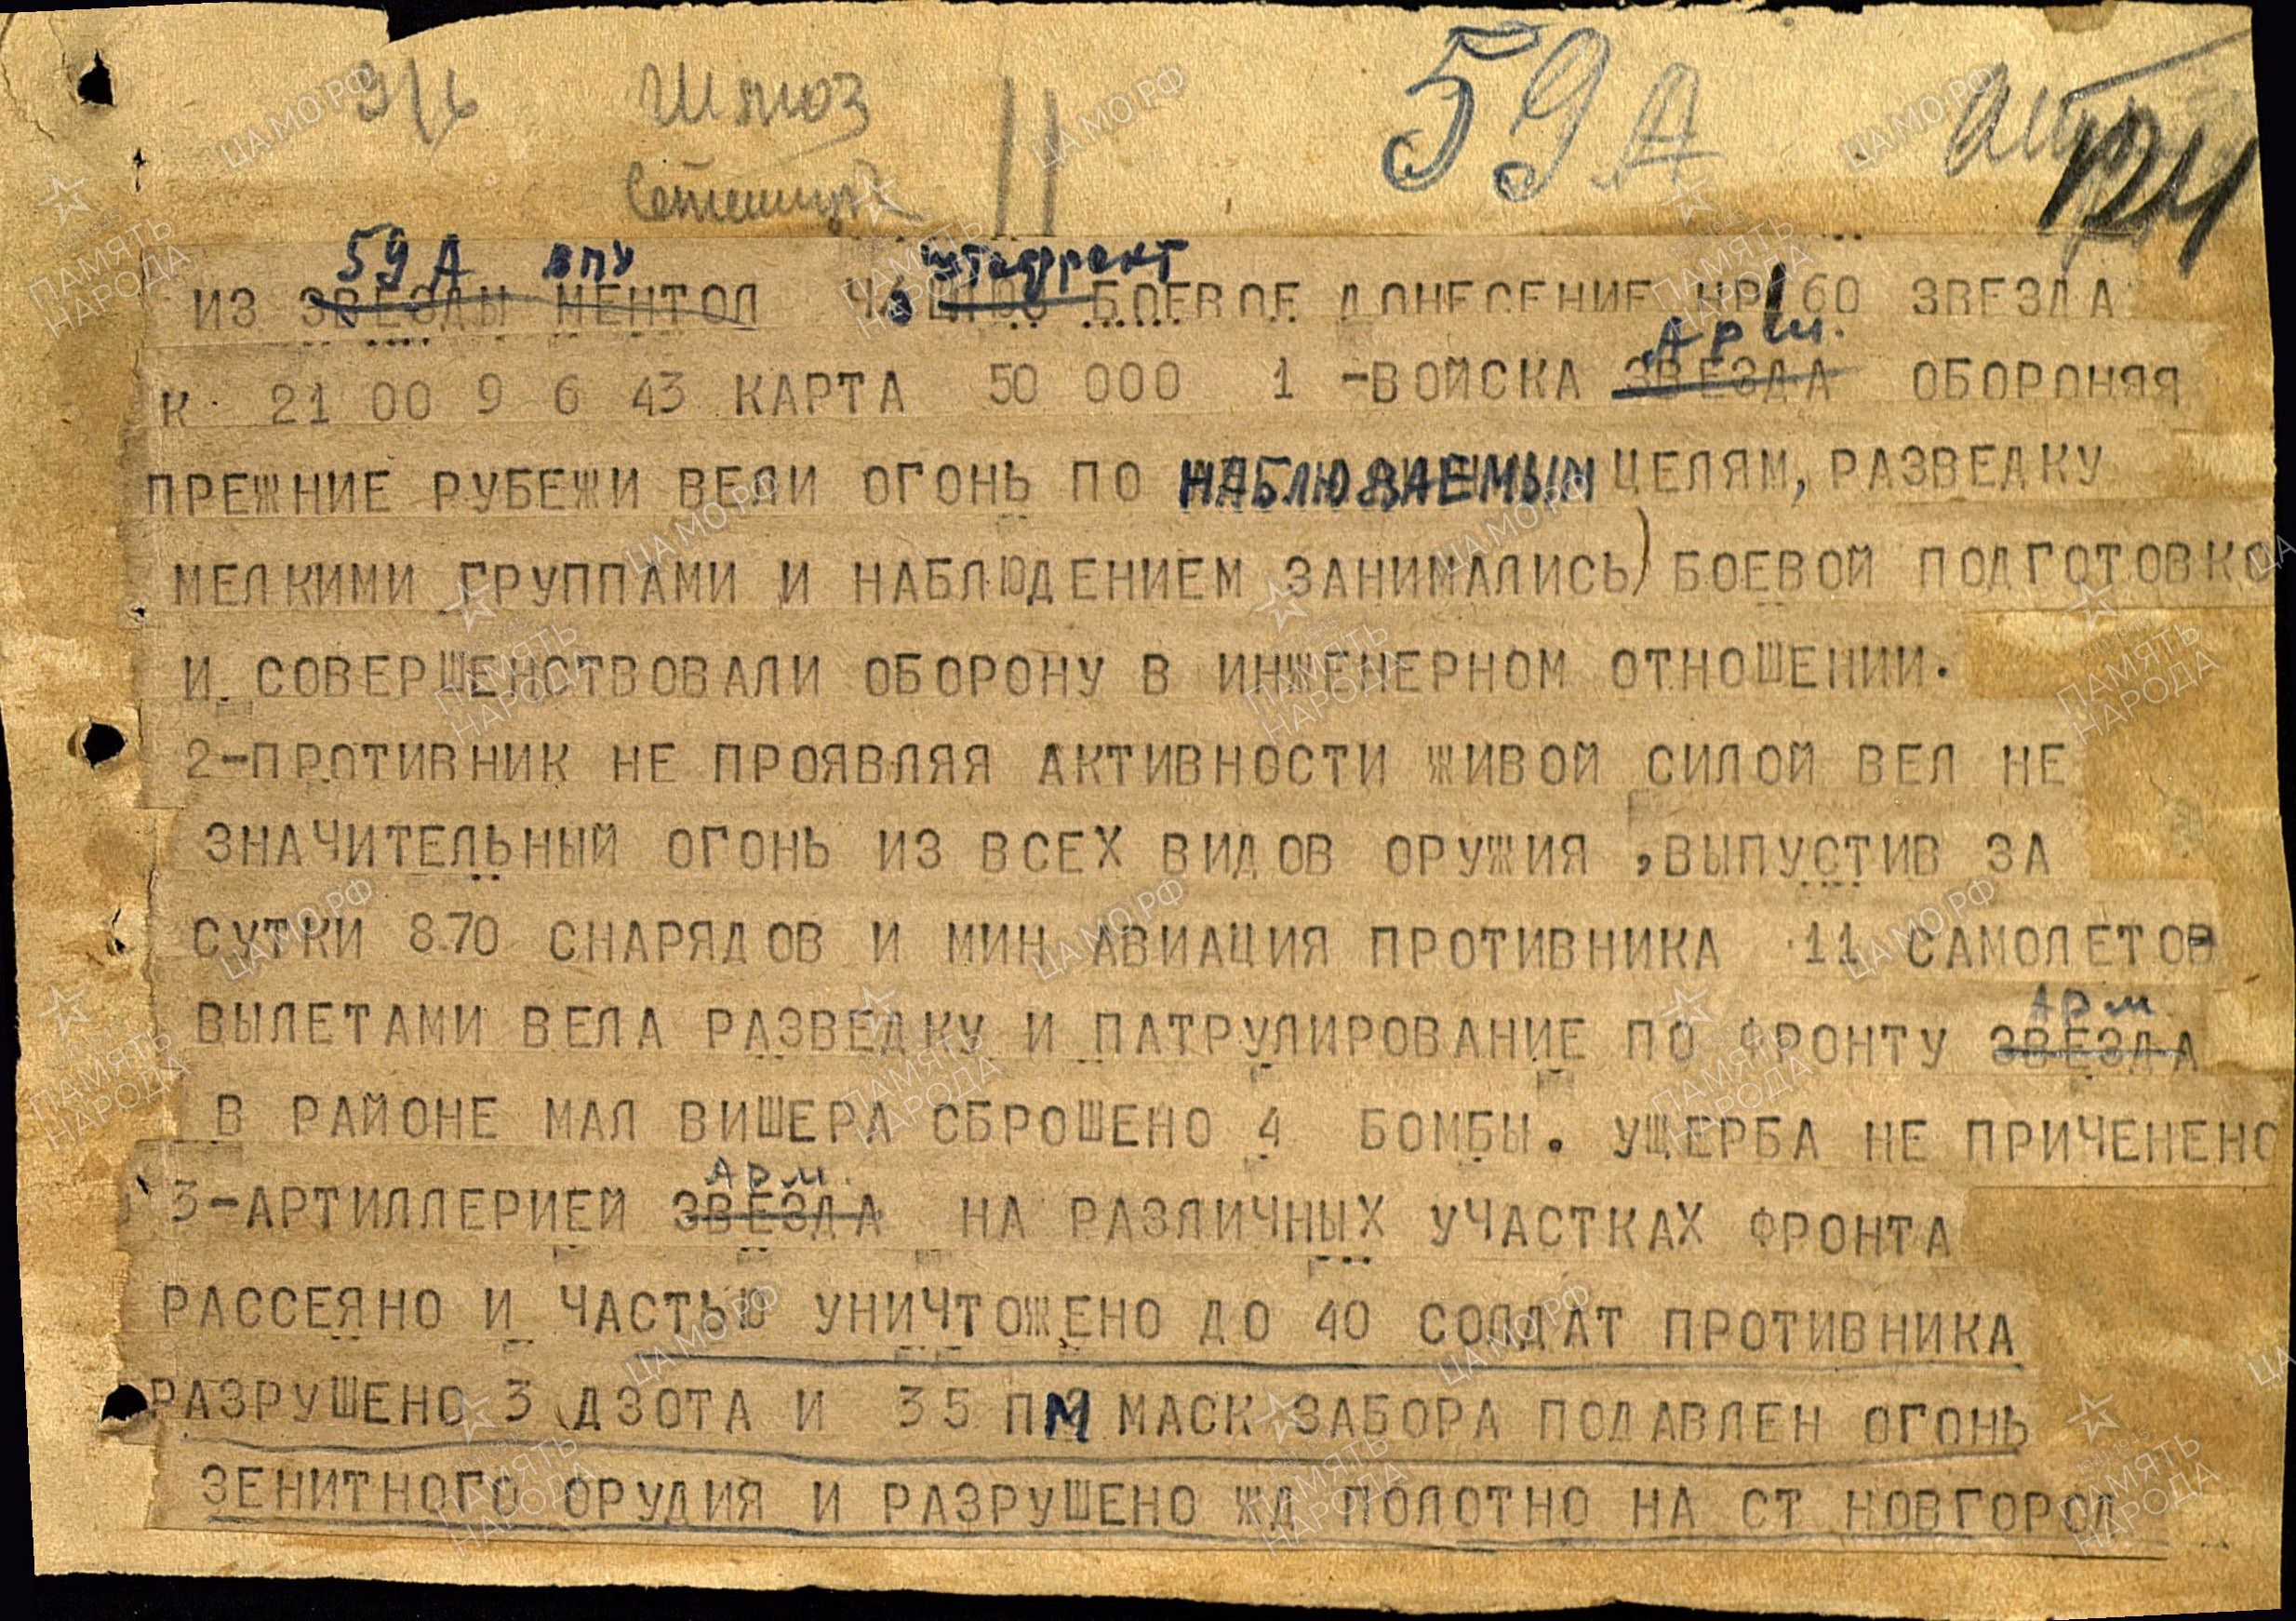 9/6 Шлюз 59 А
11 124
59 А ВПУ Штафронт
ИЗ ЗВЕЗДЫ МЕНТОЛ БОЕВОЕ ДОНЕСЕНИЕ НР 60 ЗВЕЗДА
Арм.
К 21 00 9 6 43 КАРТА 50 000 1 -ВОЙСКА ЗВЕЗДА ОБОРОНЯЯ
ПРЕЖНИЕ РУБЕЖИ ВЕЛИ ОГОНЬ ПО НАБЛЮДАЕМЫМ ЦЕЛЯМ, РАЗВЕДКУ
МЕЛКИМИ ГРУППАМИ И НАБЛЮДЕНИЕМ ЗАНИМАЛИСЬ) БОЕВОЙ ПОДГОТОВКО
И СОВЕРШЕНСТВОВАЛИ ОБОРОНУ В ИНЖЕНЕРНОМ ОТНОШЕНИИ.
2-ПРОТИВНИК НЕ ПРОЯВЛЯЯ АКТИВНОСТИ ЖИВОЙ СИЛОЙ ВЕЛ НЕ
ЗНАЧИТЕЛЬНЫЙ ОГОНЬ ИЗ ВСЕХ ВИДОВ ОРУЖИЯ ,ВЫПУСТИВ ЗА
СУТКИ 870 СНАРЯДОВ И МИН АВИАЦИЯ ПРОТИВНИКА 11 САМОЛЕТОВ
Арм
ВЫЛЕТАМИ ВЕЛА РАЗВЕДКУ И ПАТРУЛИРОВАНИЕ ПО ФРОНТУ ЗВЕЗДА
В РАЙОНЕ МАЛ ВИШЕРА СБРОШЕНО 4 БОМБЫ. УЩЕРБА НЕ ПРИЧЕНЕНО
Арм.
3-АРТИЛЛЕРИЕЙ ЗВЕЗДА НА РАЗЛИЧНЫХ УЧАСТКАХ ФРОНТА
РАССЕЯНО И ЧАСТЬЮ УНИЧТОЖЕНО ДО 40 СОЛДАТ ПРОТИВНИКА
РАЗРУШЕНО 3 ДЗОТА И 35 ПМ МАСК ЗАБОРА ПОДАВЛЕН ОГОНЬ
ЗЕНИТНОГО ОРУДИЯ И РАЗРУШЕНО ЖД ПОЛОТНО НА СТ НОВГОРОД
ЦА МО РФ
ПАМЯТЬ НАРОДА